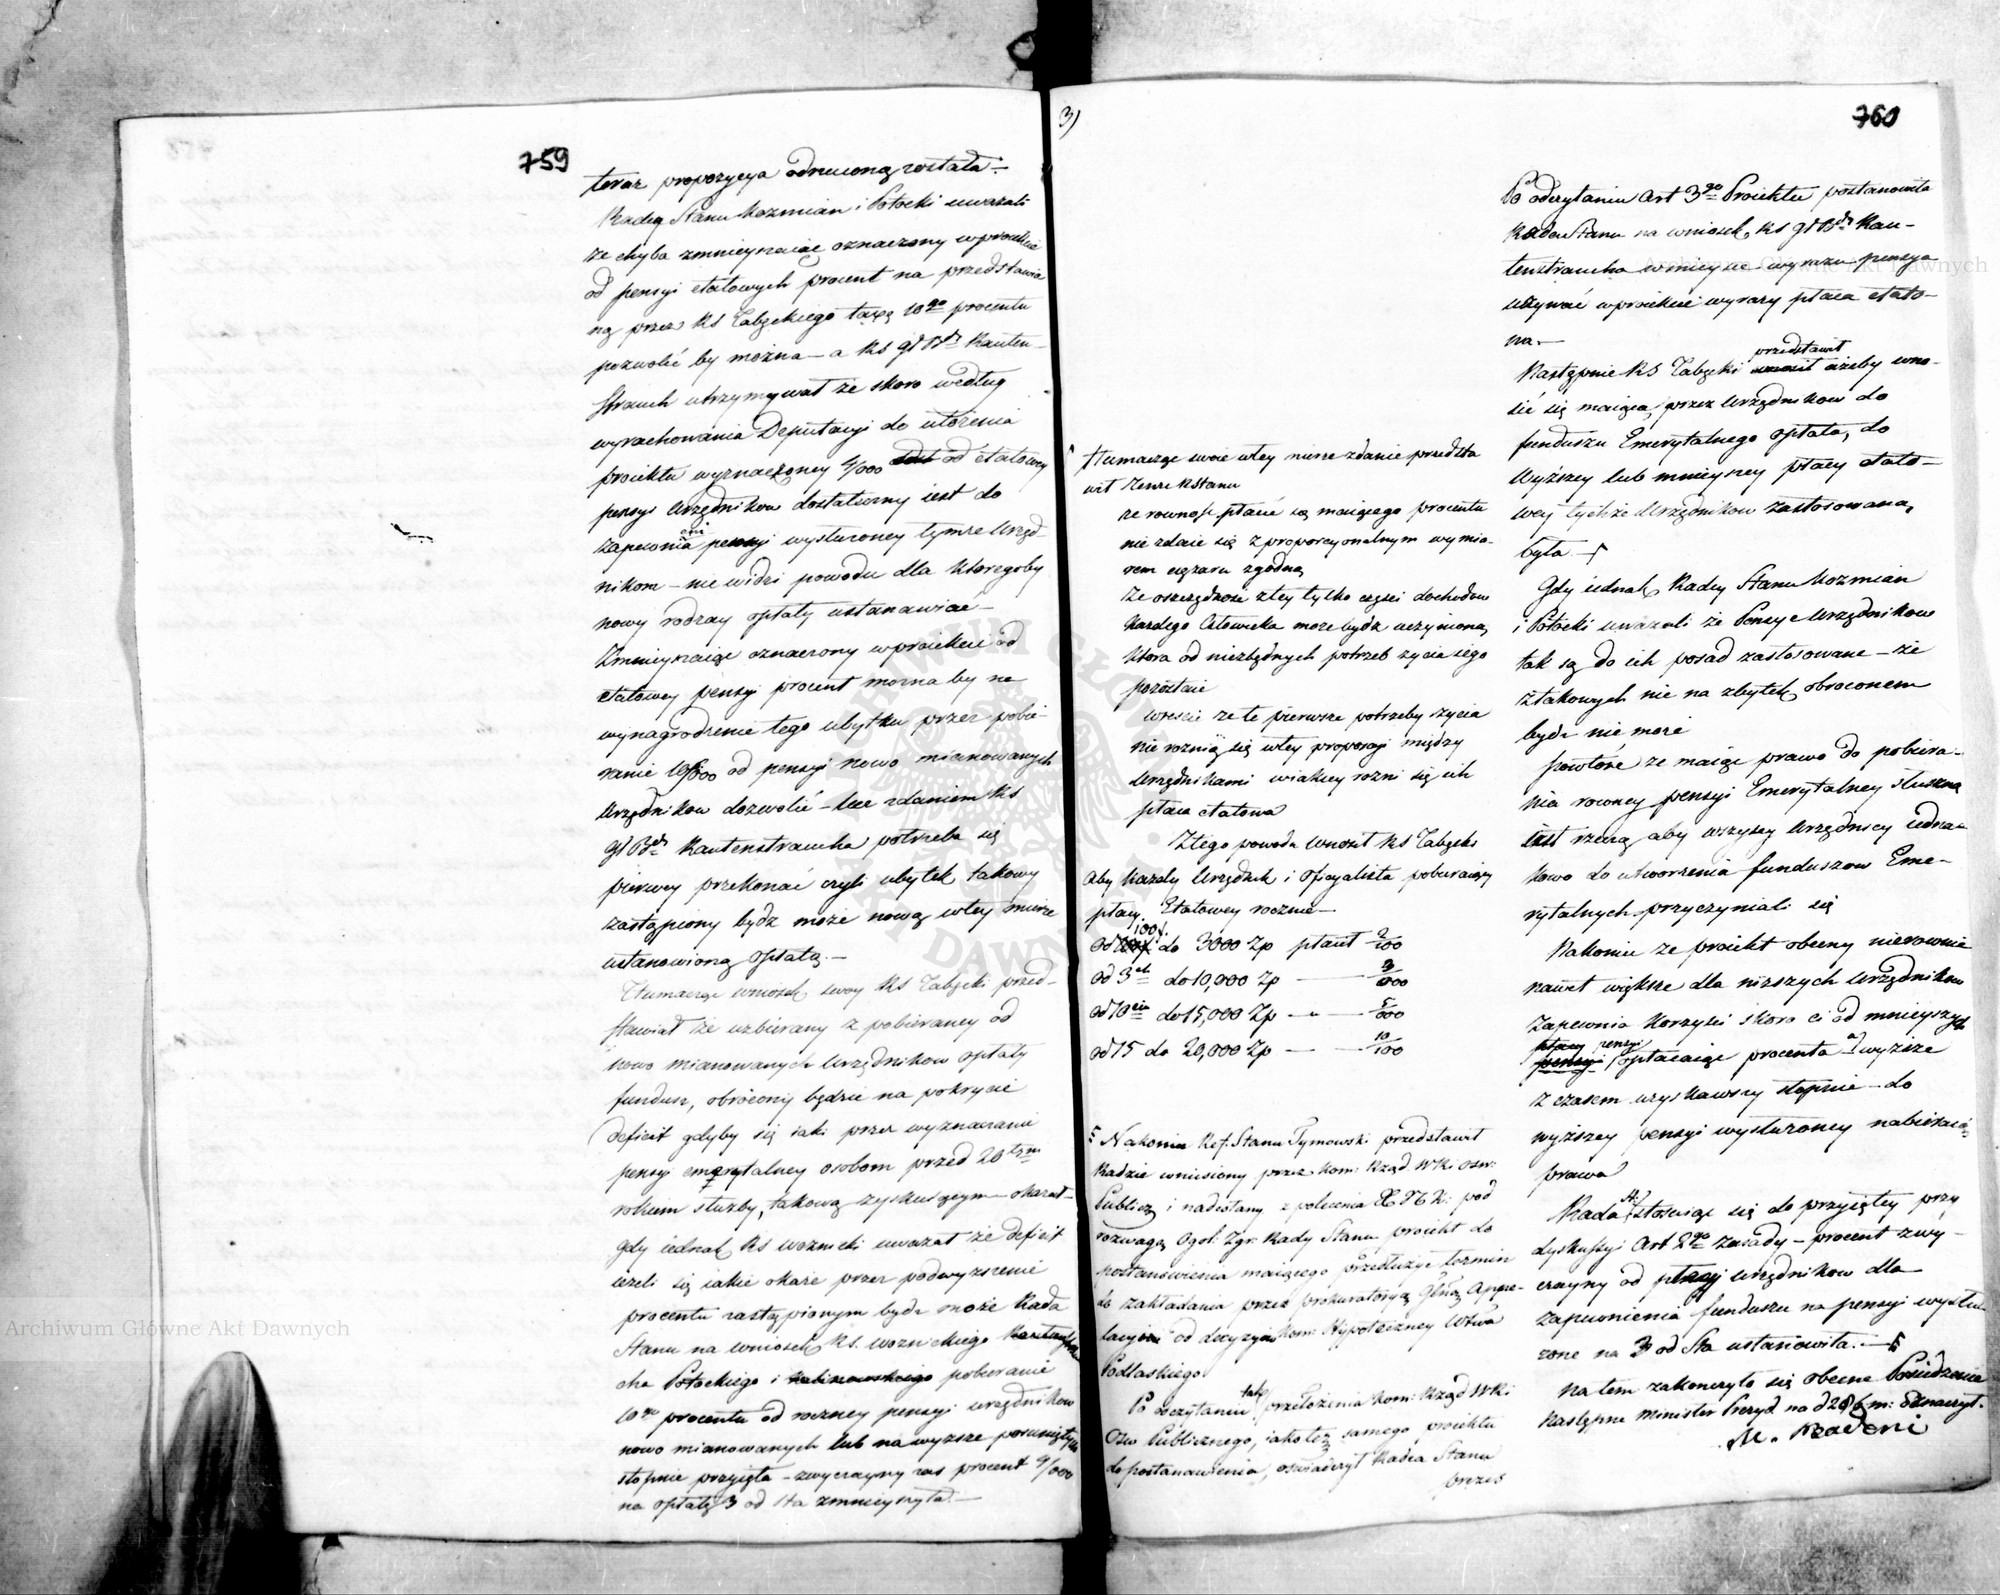 759
teraz propozycya odrzuconą została.—
Radcy Stanu Kozmian i Potocki uważali
że chyba zmnieyszaiąc oznaczony w proiekcie
od pensyi etatowych procent na przedstawio
ną przez RS Zabęckiego taxę 10go procentu
pozwolić by można — a RS Gł Bdr Rauten-
strauch utrzymywał że skoro według
wyrachowania Deputacyi do ułożenia
proiektu wyznaczoney 4/000 od etatowey
pensyi Urzędników dostateczny iest do
zapewnienia pensyi wysłużoney tymże Urzęd-
nikom — nie widzi powodu dla którego by
nowy rodzay opłaty ustanawiać —
Zmnieyszaiąc oznaczony w proiekcie od
etatowey pensyi procent można by na
wynagrodzenie tego ubytku przez pobie-
ranie 10/000 od pensyi nowo mianowanych
Urzędników dozwolić — lecz zdaniem RS
Gł Bdr Rautenstraucha potrzeba się
pierwey przekonać czyli ubytek takowy
zastąpiony bydź może nową w tey mierze
ustanowioną opłatą.—
Tłumacząc wniosek swoy RS Zabęcki przed-
stawiał że uzbierany z pobieraney od
nowo mianowanych Urzędników opłaty
fundusz, obrócony będzie na pokrycie
deficit gdyby się iaki przez wyznaczanie
pensyi emerytalney osobom przed 20tym
rokiem służby, takową zyskuiącym — okazał —
gdy iednak RS Woznicki uważał że deficit
ieżeli się iakie okaże przez podwyższenie
procentu zastąpionym bydź może Rada
Stanu na wniosek RS. Woznickiego Rautenstrau
cha Potockiego i Kalinowskiego pobieranie
10go procentu od roczney pensyi urzędników
nowo mianowanych lub na wyższe posuniętych
stopnie przyięła — zwyczayny zas procent 4/000
na opłatę 3 od sta zmnieyszyła.—
3)
760
Tłumacząc swoie w tey mierze zdanie przedsta
wił tenże RStanu
że równość płacić się maiącego procentu
nie zdaie się z proporcyonalnym wymia-
rem ciężaru zgodną
Że oszczędność z tey tylko części dochodów
każdego Człowieka może bydź uczynioną
która od niezbędnych potrzeb życia iego
pozostaie
wreszcie że te pierwsze potrzeby życia
nie rożnią się w tey proporcyi między
Urzędnikami w iakiey rożni się ich
płaca etatowa
Z tego powodu wnosił RS Zabęcki
Aby każdy Urzędnik i Oficyalista pobieraiący
płacy Etatowey rocznie —
100f.
Od do 3000 Zp płacił 2/100
Od 3ch do 10,000 Zp — 3/000
Od 10ciu do 15,000 Zp — " — 5/000
od 15 do 20,000 Zp — — 10/100
Nakoniec Ref. Stanu Tymowski przedstawił
Radzie wniesiony przez Kom: Rząd WRi Osw:
Publicz i nadesłany z polecenia X N K: pod
rozwagę Ogol. Zgr. Rady Stanu proiekt do
postanowienia maiącego przedłużyć termin
do zakładania przez prokuratoryą Głną Appe-
lacyi od decyzyi Kom: Hypoteczney Wtwa
Podlaskiego.
Po odczytaniu tak przełożenia Kom: Rząd WRi
Osw Publicznego, iako też samego proiektu
do postanowienia, oświadczył Radca Stanu
prezes
Po odczytaniu Art 3go Proiektu postanowiła
Rada Stanu na wniosek RS Gł Bdr Rau-
tenstraucha w mieysce wyrazu pensya
używać w proiekcie wyrazy płaca etato-
wa.—
Następnie RS Zabęcki przedstawił ażeby wno-
sić się maiąca, przez Urzędników do
funduszu Emerytalnego opłata, do
wyższey lub mnieyszey płacy etato-
wey tychże Urzędników zastosowaną
była.—
Gdy iednak Radcy Stanu Kozmian
i Potocki uważali że Pensye Urzędników
tak są do ich posad zastosowane — że
z takowych nic na zbytek obroconem
bydź nie może
powtóre że maiąc prawo do pobiera-
nia rowney pensyi Emerytalney słuszną
iest rzeczą aby wszyscy Urzędnicy iedna-
kowo do utworzenia funduszow Eme-
rytalnych przyczyniali się
Nakoniec że proiekt obecny nierownie
nawet większe dla niższych Urzędników
zapewnia korzyści skoro ci od mnieyszych
płacy pensyi
pensyi opłacaiąc procenta a wyższe
z czasem uzyskawszy stopnie — do
wyższey pensyi wysłużoney nabieraią
prawa
Rada St: stosuiąc się do przyiętey przy
dyskussyi Art 2go zasady — procent zwy-
czayny od płacy urzędników dla
zapewnienia funduszu na pensye wysłu-
żone na 3 od Sta ustanowiła.—
Na tem zakonczyło się obecne Posiedzenie
Następne Minister Prezyd na d 28 b m: oznaczył.
M. Badeni
Archiwum Główne Akt Dawnych
Archiwum Główne Akt Dawnych